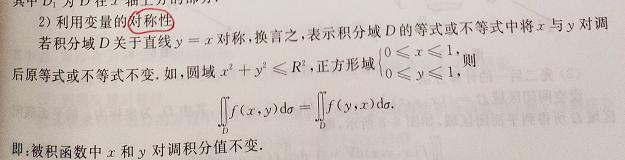 2) 利用变量的对称性
若积分域 D 关于直线 y = x 对称,换言之,表示积分域 D 的等式或不等式中将 x 与 y 对调
后原等式或不等式不变.如,圆域 x² + y² ≤ R²,正方形域 { 0 ≤ x ≤ 1, 0 ≤ y ≤ 1, 则
∬_D f(x,y)dσ = ∬_D f(y,x)dσ.
即:被积函数中 x 和 y 对调积分值不变.